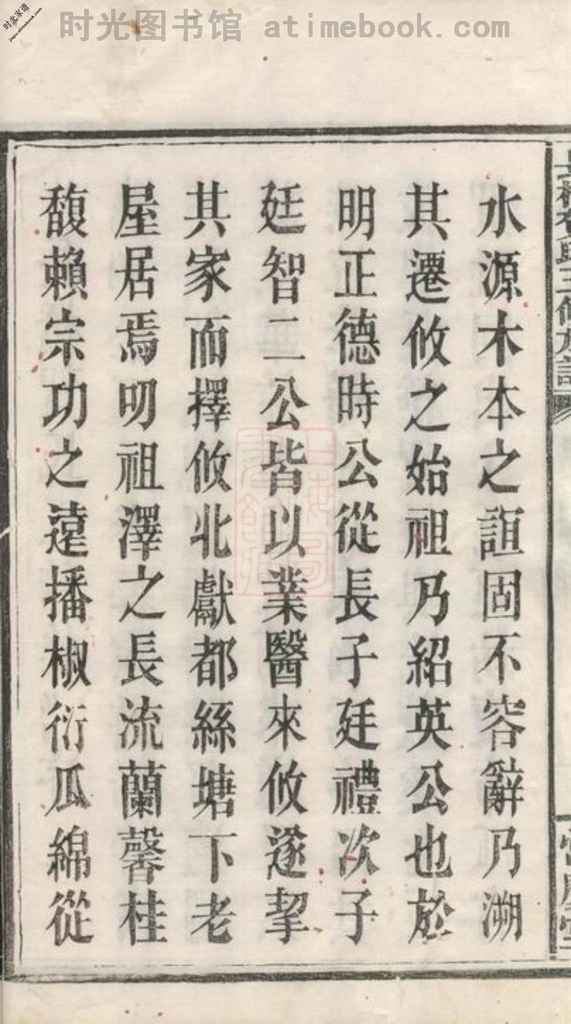 时光图书馆 atimebook.com
水源木本之誼固不容辭乃溯
其遷攸之始祖乃紹英公也於
明正德時公從長子廷禮次子
廷智二公皆以業醫來攸遂挈
其家而擇攸北獻都絲塘下老
屋居焉叨祖澤之長流蘭馨桂
馥賴宗功之遠播椒衍瓜綿從